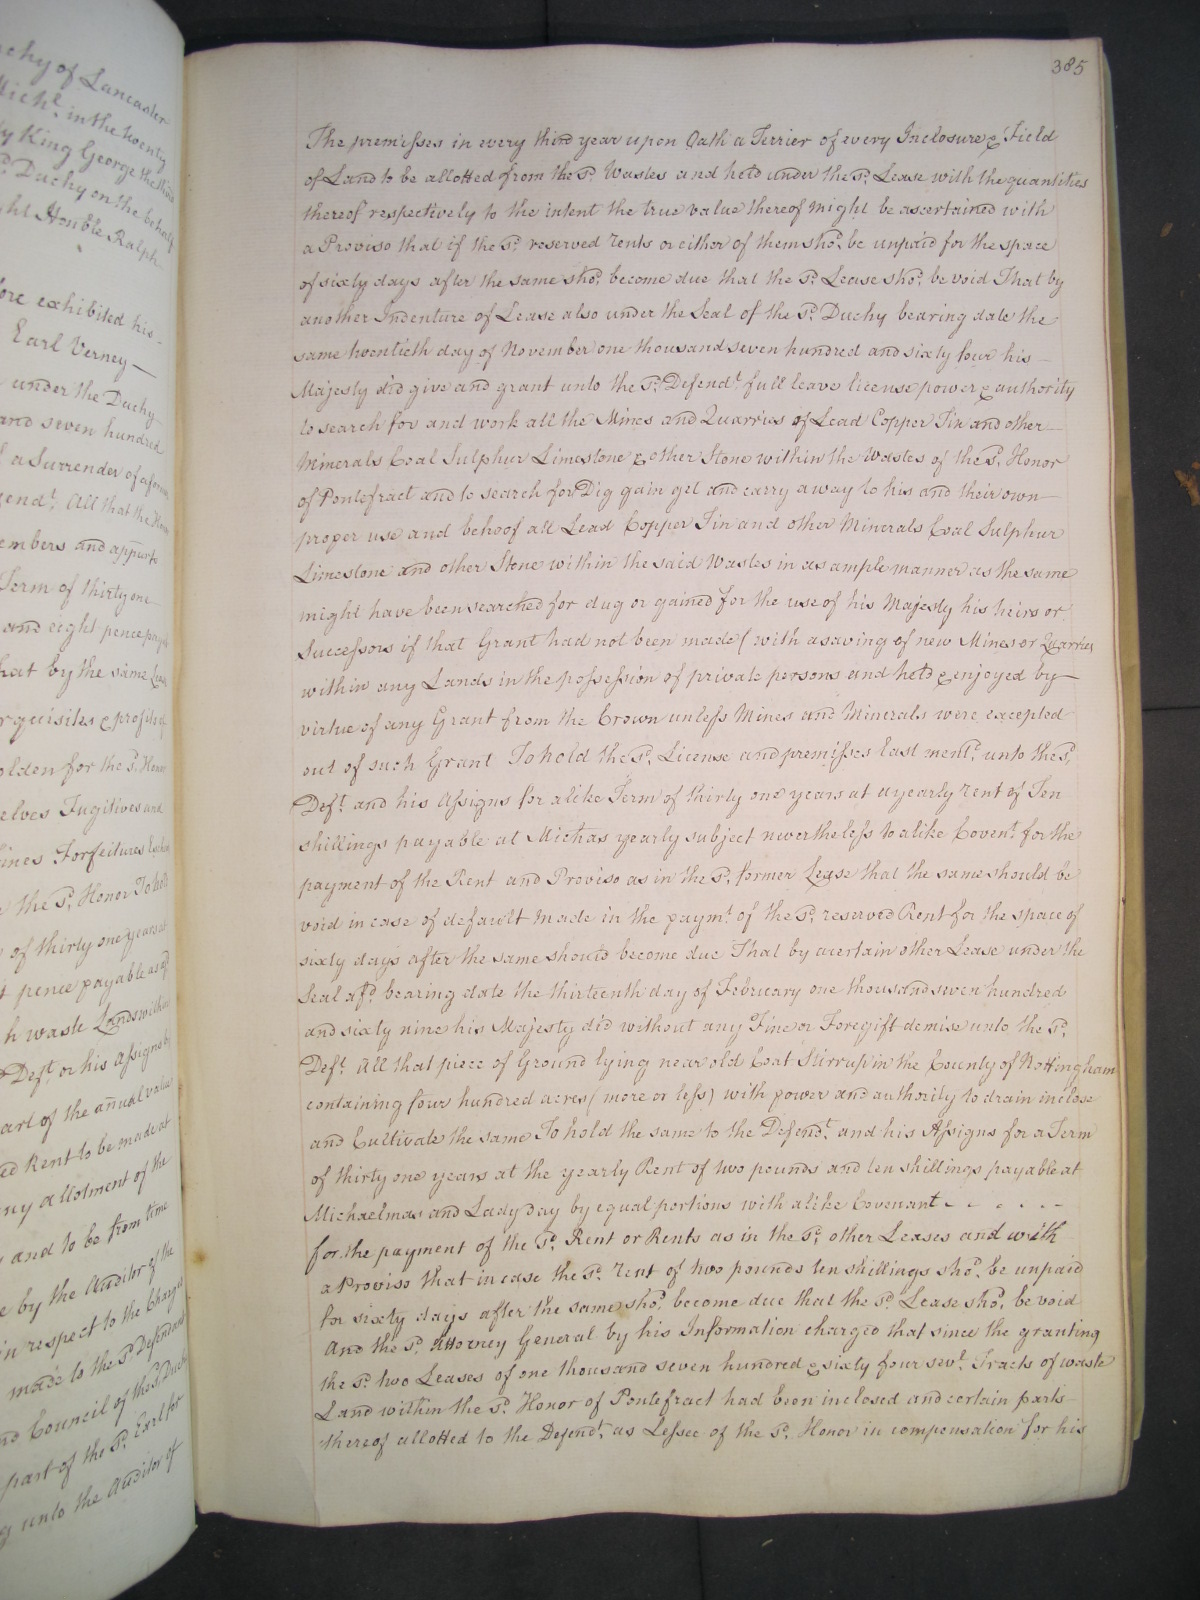 chy of Lancaster
Mich.l in the twenty
ly King George the third
s.d Duchy on the behalf
ght Honble Ralph
fore exhibited his
Earl Verney
under the Duchy
and seven hundred
a Surrender of a former
fend.t All that the Honor
embers and appurts
Term of thirty one
and eight pence
hat by the same
rquisites & profits of
olden for the s.d Honor
elves Fugitives and
ines Forfeitures
the s.d Honor To hold
of thirty one years at
t pence payable as af
h waste Lands within
Def.t or his Assigns by
art of the annual value
ed Rent to be made at
ny allotment of the
and to be from time
e by the Auditor of the
in respect to the Charges
made to the s.d Defendant
nd Council of the s.d Duchy
part of the s.d Earl for
g unto the Auditor of
385
The premisses in every third year upon Oath a Terrier of every Inclosure & Field
of Land to be allotted from the s.d Wastes and held under the s.d Lease with the quantities
thereof respectively to the intent the true value thereof might be ascertained with
a Proviso that if the s.d reserved rents or either of them sho.d be unpaid for the space
of sixty days after the same sho.d become due that the s.d Lease sho.d be void That by
another Indenture of Lease also under the Seal of the s.d Duchy bearing date the
same twentieth day of November one thousand seven hundred and sixty four his
Majesty did give and grant unto the s.d Defend.t full leave license power & authority
to search for and work all the Mines and Quarries of Lead Copper Tin and other
Minerals Coal Sulphur Limestone & other Stone within the Wastes of the s.d Honor
of Pontefract and to search for Dig gain get and carry away to his and their own
proper use and behoof all Lead Copper Tin and other Minerals Coal Sulphur
Limestone and other Stone within the said Wastes in as ample manner as the same
might have been searched for dug or gained for the use of his Majesty his heirs or
Successors if that Grant had not been made (with a saving of new Mines or Quarries
within any Lands in the possession of private persons and held & enjoyed by
virtue of any Grant from the Crown unless Mines and Minerals were excepted
out of such Grant To hold the s.d License and premisses last ment.d unto the s.d
Def.t and his Assigns for a like Term of thirty one years at a yearly rent of Ten
shillings payable at Mich'as yearly subject nevertheless to a like Coven.t for the
payment of the Rent and Proviso as in the s.d former Lease that the same should be
void in case of default made in the paym.t of the s.d reserved Rent for the space of
sixty days after the same should become due That by a certain other Lease under the
Seal af.d bearing date the thirteenth day of February one thousand seven hundred
and sixty nine his Majesty did without any Fine or Foregift demise unto the s.d
Def.t All that piece of Ground lying near old Coat Stirrup in the County of Nottingham
containing four hundred acres (more or less) with power and authority to drain inclose
and Cultivate the same To hold the same to the Defend.t and his Assigns for a Term
of thirty one years at the yearly Rent of two pounds and ten shillings payable at
Michaelmas and Lady day by equal portions with a like Covenant - - - - - -
for the payment of the s.d Rent or Rents as in the s.d other Leases and with
a Proviso that in case the s.d rent of two pounds ten shillings sho.d be unpaid
for sixty days after the same sho.d become due that the s.d Lease sho.d be void
And the s.d Attorney General by his Information charged that since the granting
the s.d two Leases of one thousand seven hundred & sixty four sev.l Tracts of waste
Land within the s.d Honor of Pontefract had been inclosed and certain parts
thereof allotted to the Defend.t as Lessee of the s.d Honor in compensation for his